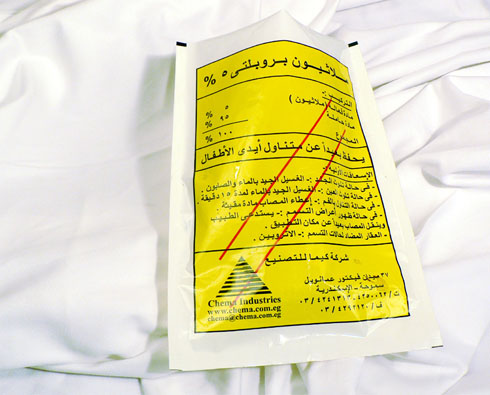 ملاثيون بروبلتى ٥ %
التركيب :-
مادة فعالة ( ملاثيون ) ٥ %
مادة حاملة ٩٥ %
المجموع ١٠٠ %
يحفظ بعيداً عن متناول أيدى الأطفال
الإسعافات الأولية :-
- فى حالة تلوث الجلد :- الغسيل الجيد بالماء والصابون .
- فى حالة تلوث العين :- الغسيل الجيد بالماء لمدة ١٥ دقيقة
- فى حالة التلوث بالفم :- إعطاء المصاب مادة مقيئة
- فى حالة ظهور أعراض التسمم :- يستدعى الطبيب
وينقل المصاب بعيداً عن مكان التطبيق .
- العقار المضاد لحالات التسمم :- الأتروبين .
شركة كيما للتصنيع
٣٧ ميدان فيكتور عمانويل
سموحة - الإسكندرية
ت / ٤٢٥٠٠٦٢ - ٠٣ / ٤٢٤١٣١٣
ف / ٤٢٩٢١٢٠ / ٠٣
Chema Industries
www.chema.com.eg
chema@chema.com.eg